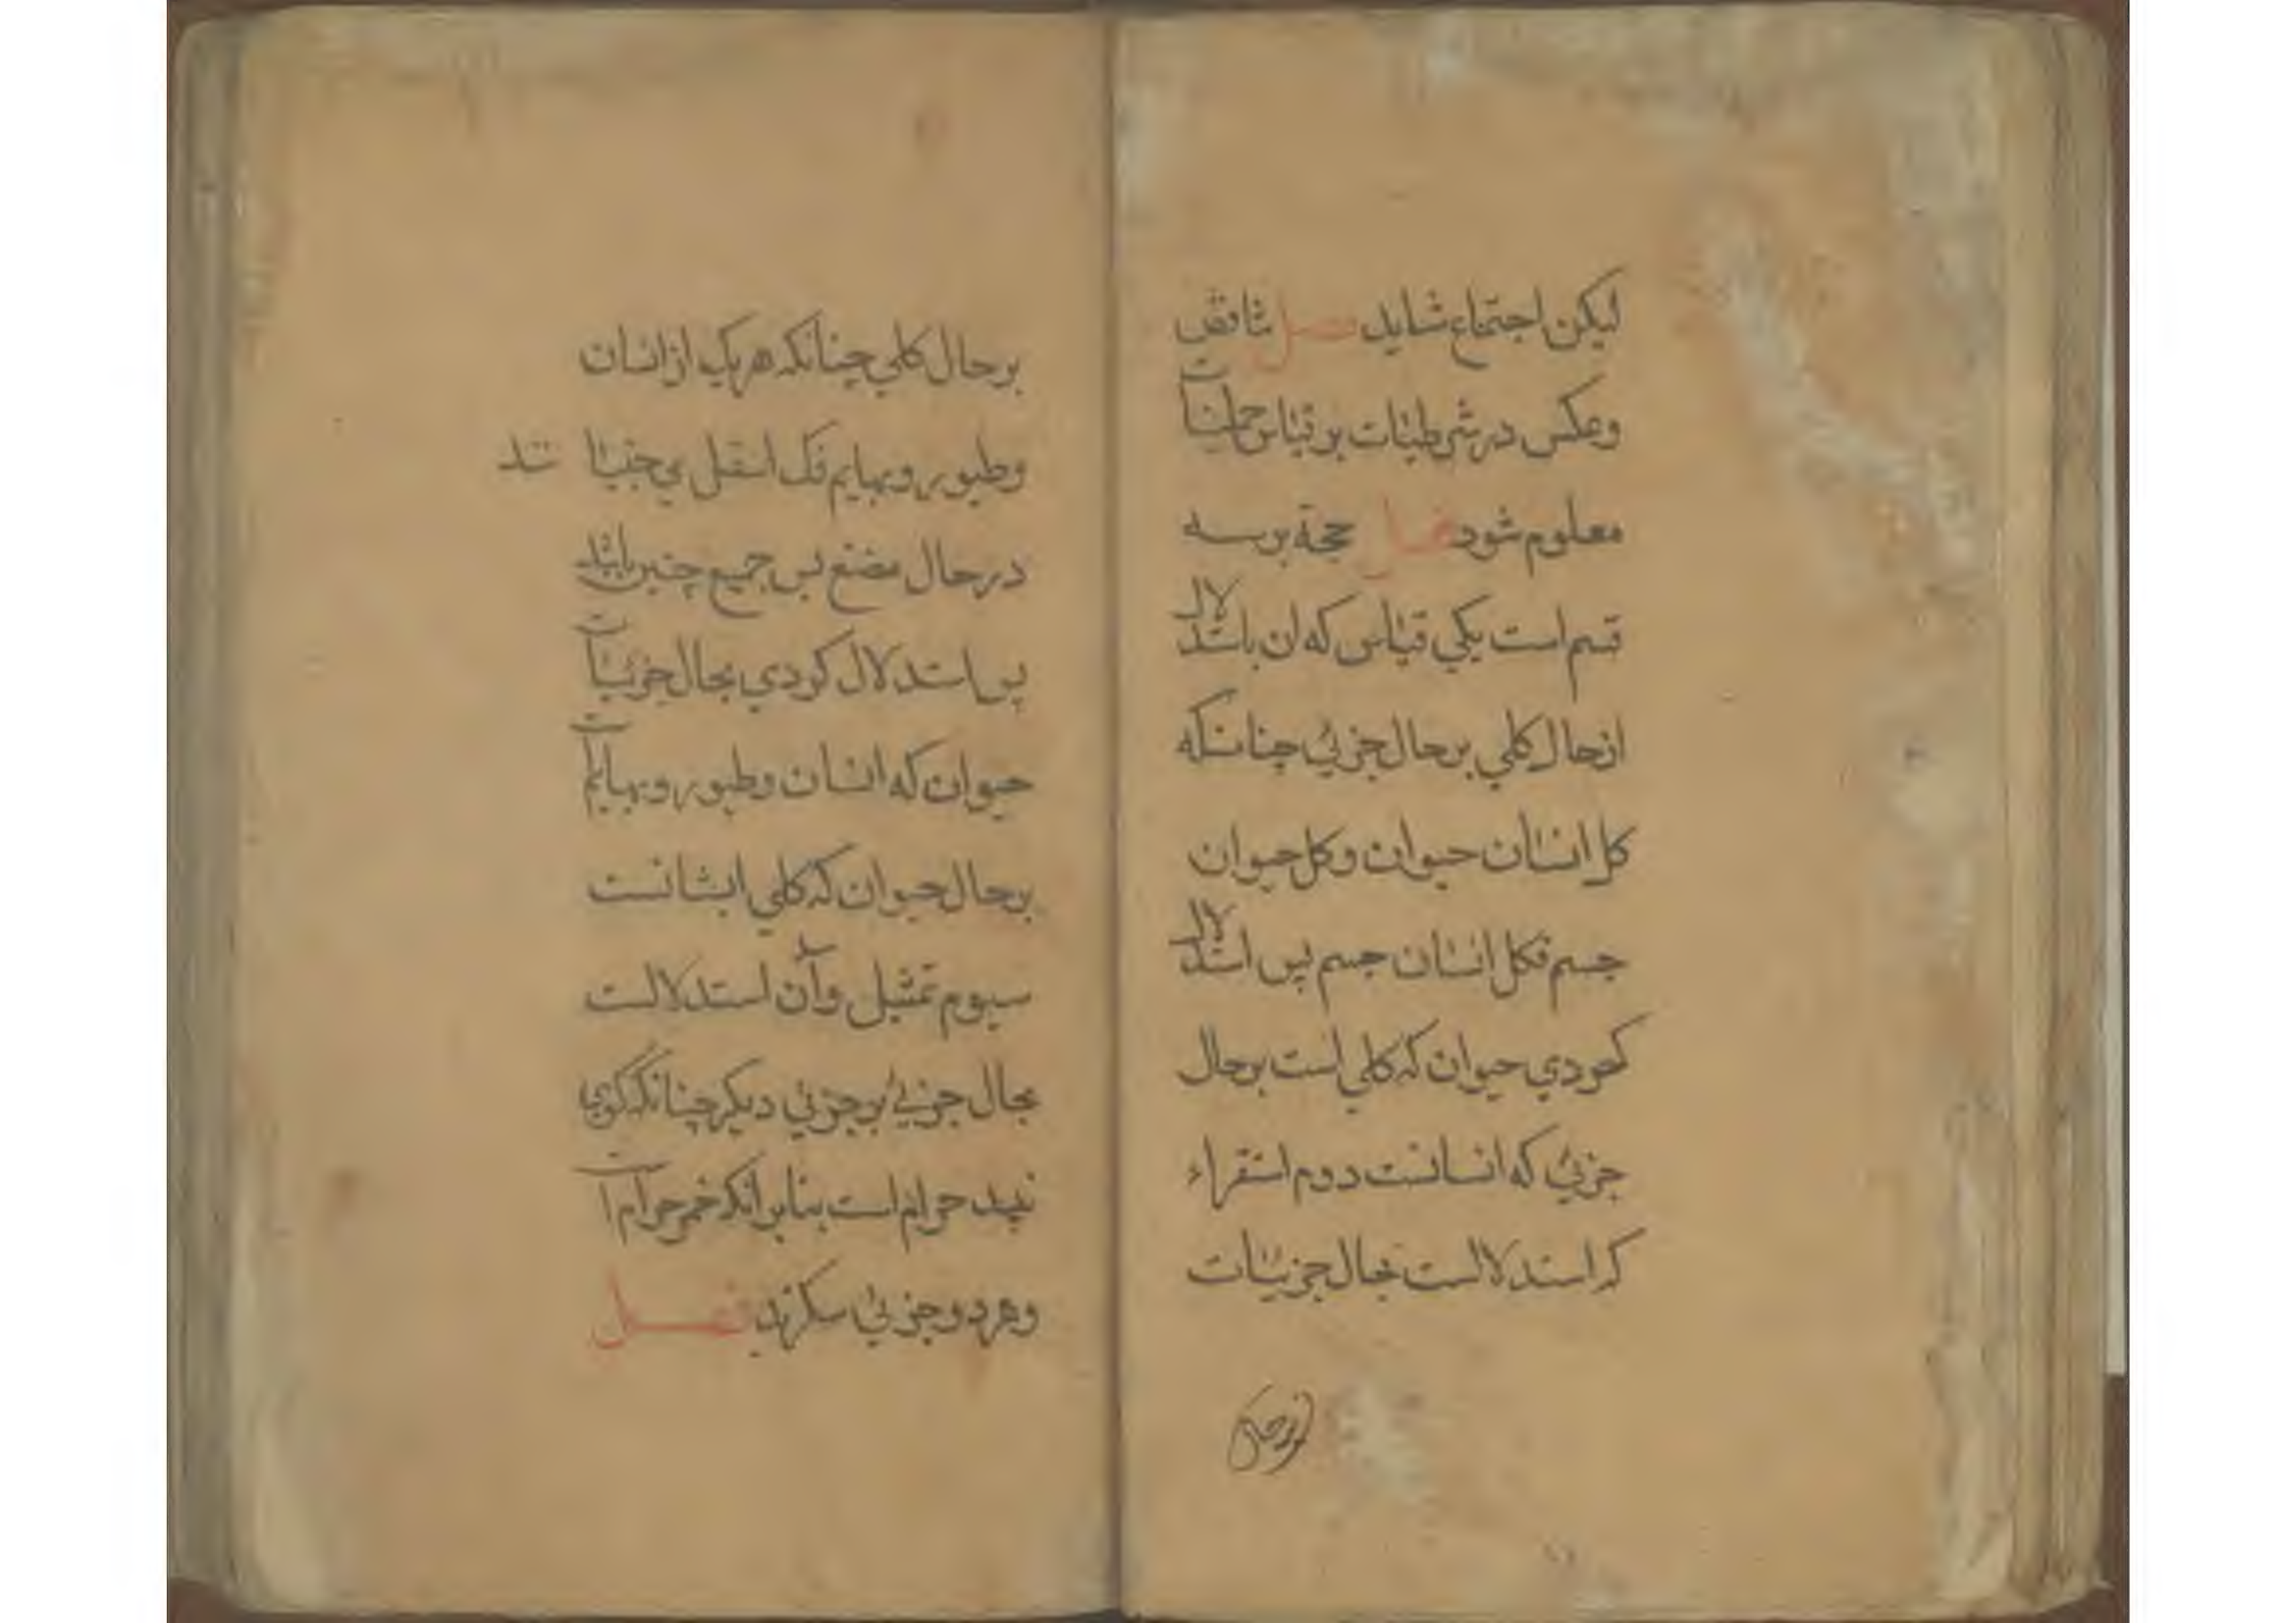 لیکن اجتماع شاید فصل تناقض
وعکس در شرطیات بر قیاس حملیات
معلوم شود فصل حجة بر سه
قسم است یکی قیاس که ان باستدلال
از حال کلی بر حال جزئی چنانکه
کل انسان حیوان وکل حیوان
جسم فکل انسان جسم پس استدلال
کردی حیوان که کلی است بر حال
جزئی که انسانست دوم استقراء
که استدلالست بحال جزئیات
بر حال
بر حال کلی چنانکه هر یک از انسان
وطیور وبهایم فک اسفل می جنبانند
در حال مضغ پس جمیع چنین باشد
پس استدلال کردی بحال جزئیات
حیوان که انسان وطیور وبهایم است
بر حال حیوان که کلی ایشانست
سیوم تمثیل وآن استدلالست
بحال جزئی بر جزئی دیگر چنانکه گوئی
نبیذ حرام است بنا بر آنکه خمر حرام است
وهر دو جزئی مسکرند فصل